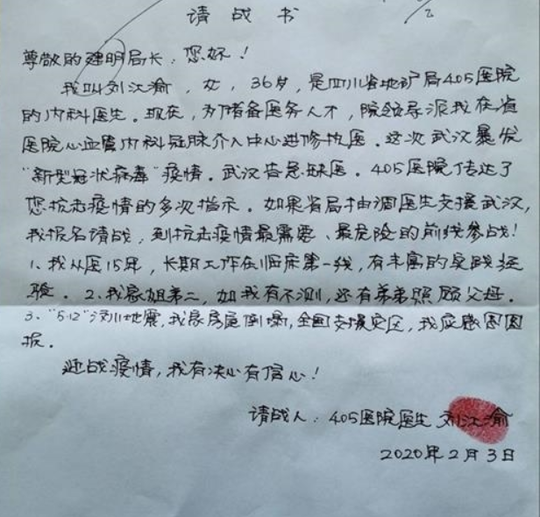 请战书
尊敬的建明局长：您好！
我叫刘江渝，女，36岁，是四川省地矿局405医院
的内科医生。现在，为储备医务人才，院领导派我在省
医院心血管内科冠脉介入中心进修执医。这次武汉暴发
“新型冠状病毒”疫情。武汉告急缺医。405医院传达了
您抗击疫情的多次指示。如果省局抽调医生支援武汉，
我报名请战，到抗击疫情最需要、最危险的前线参战！
1、我从医15年，长期工作在临床第一线，有丰富的实践经
验。2、我家姐弟二，如我有不测，还有弟弟照顾父母。
3、“5·12”汶川地震，我家房屋倒塌，全国支援灾区，我应感恩图
报。
迎战疫情，我有决心有信心！
请战人：405医院医生 刘江渝
2020年2月3日